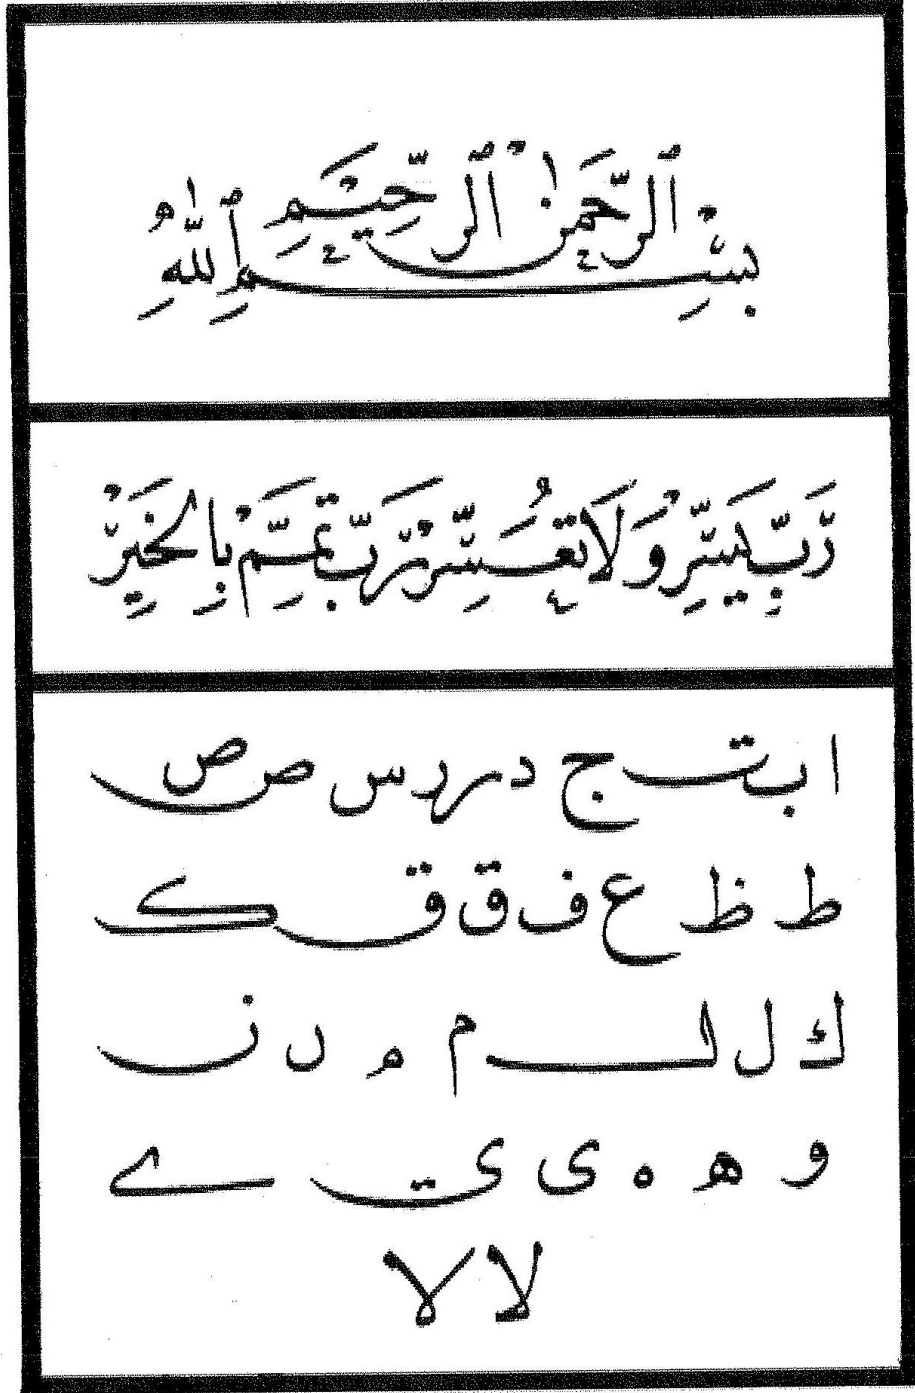 بِسْمِ ٱللَّهِ ٱلرَّحْمٰنِ ٱلرَّحِيْمِ
رَبِّ يَسِّرْ وَلَا تُعَسِّرْ رَبِّ تَمِّمْ بِالْخَيْرِ
ا ب ت ج د ر ر س ص ص
ط ظ ع ف ق ق ک
ك ل ل م م ں ن
و ھ ه ى ي ے
لا لا